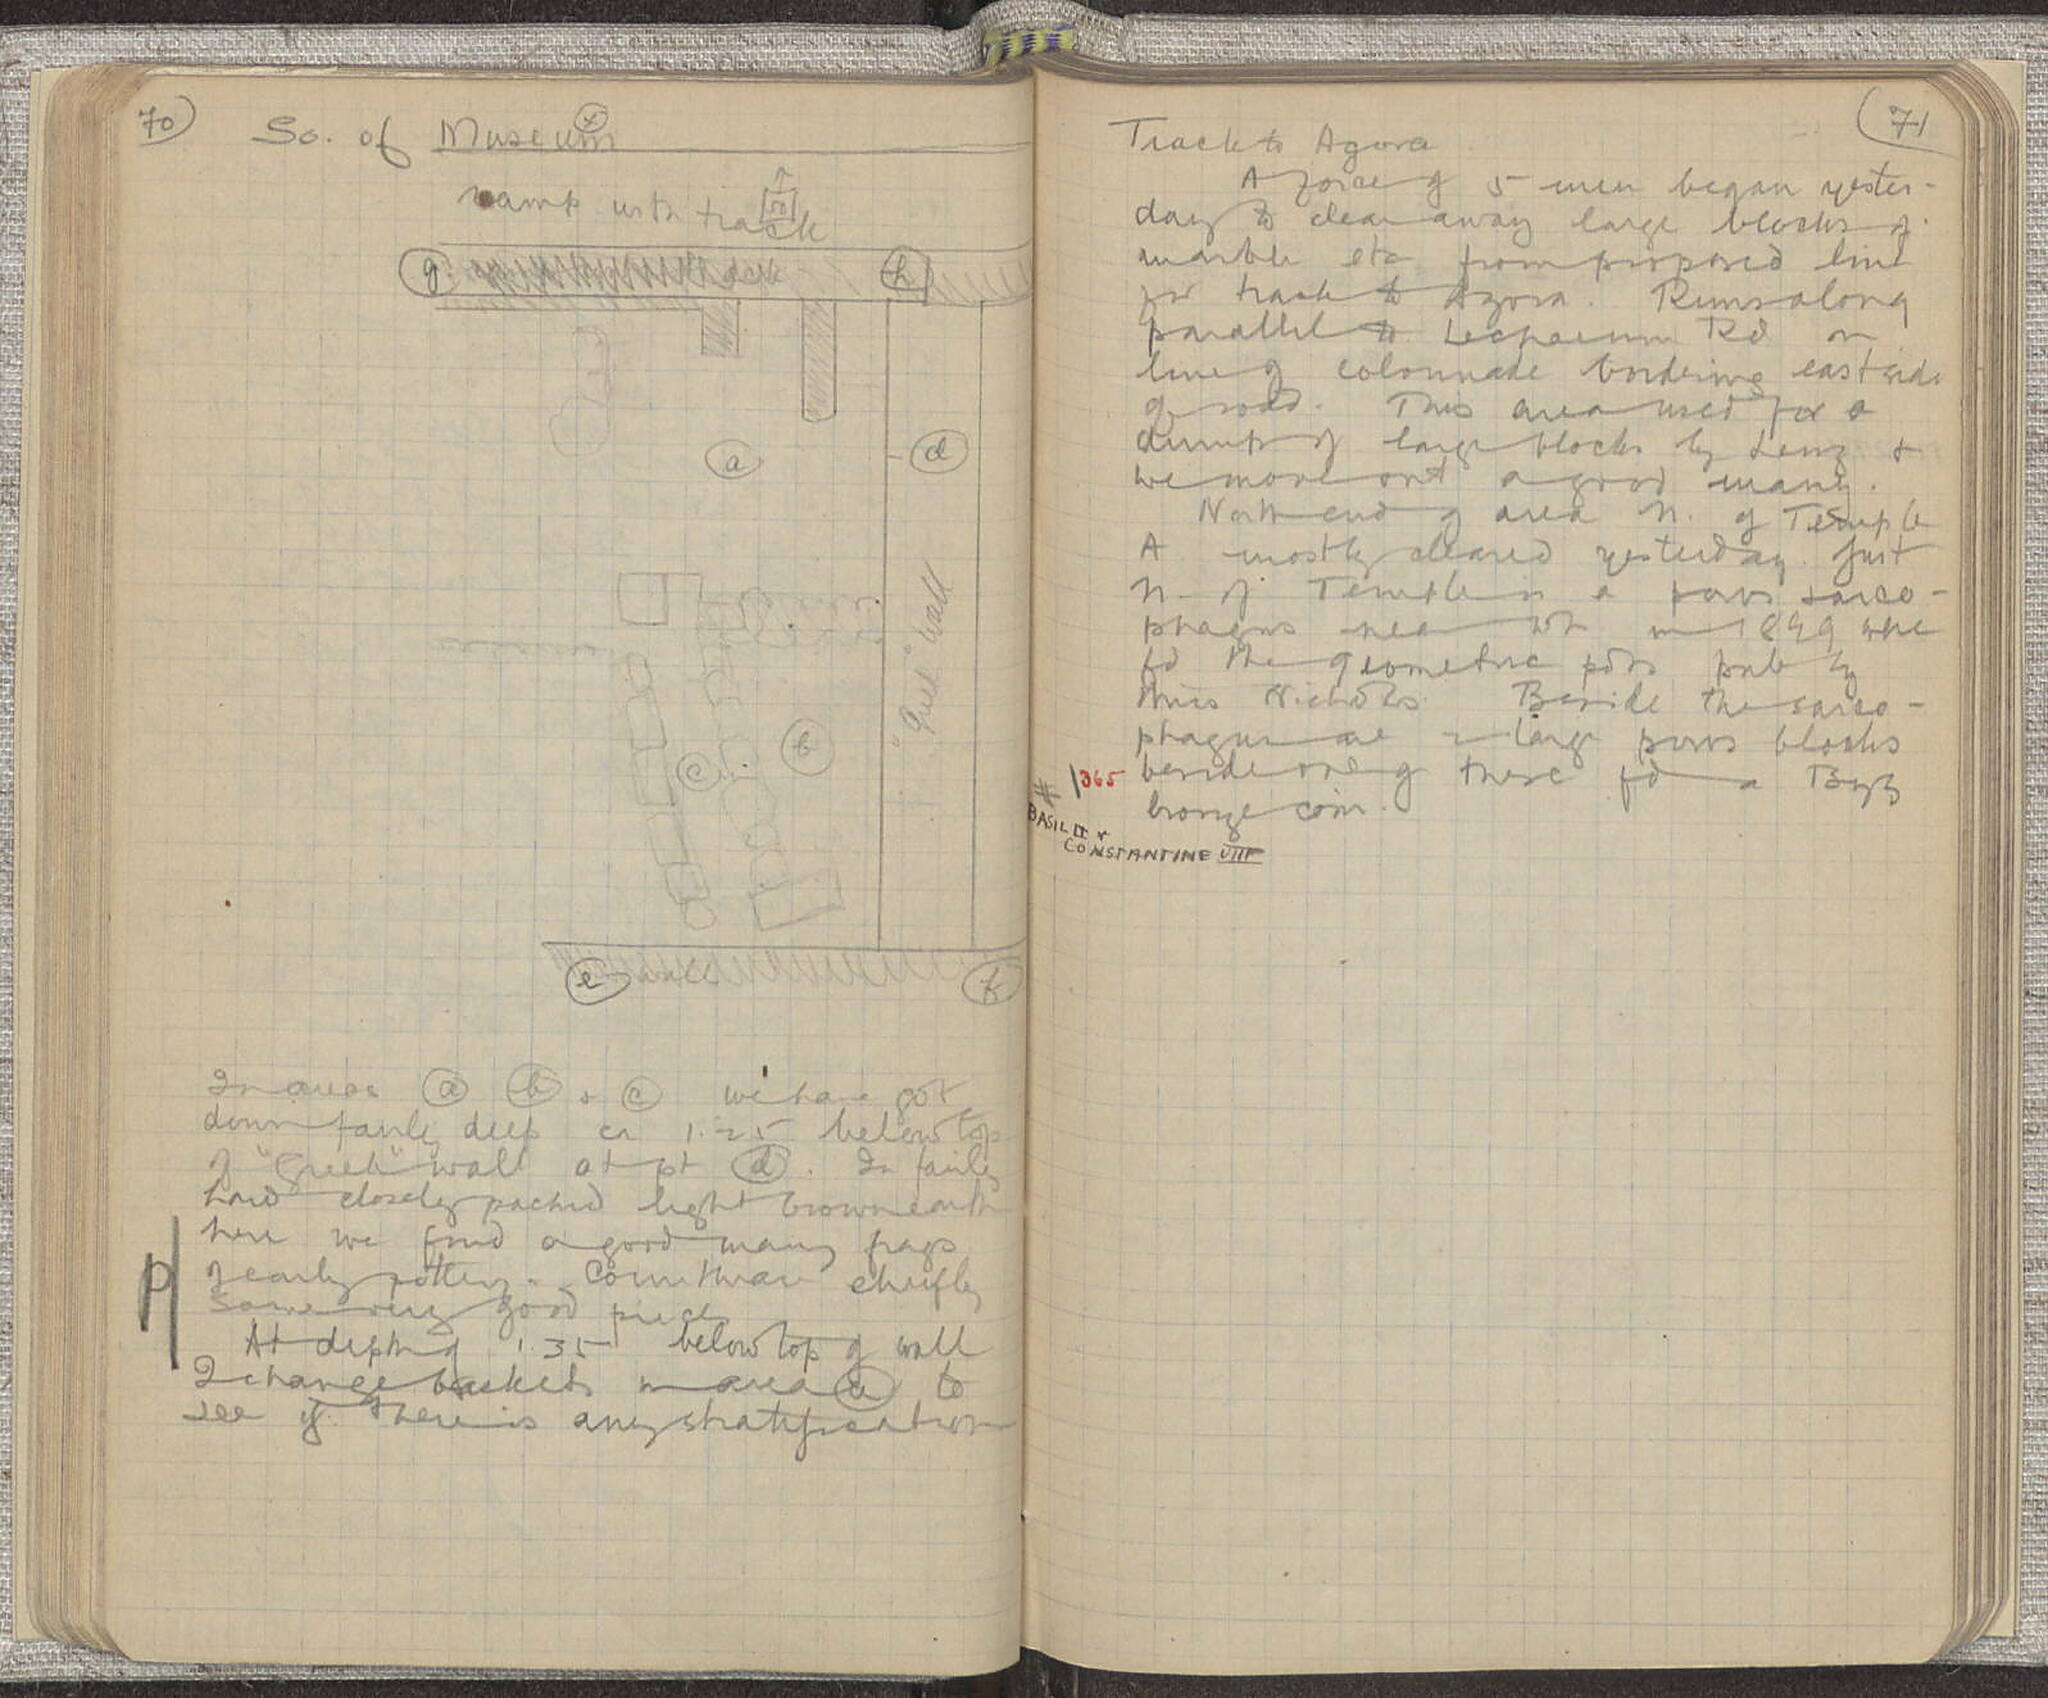 70
So. of Museum
ramp with track
g
h
a
d
"Greek" wall
b
c
e
wall
f
In areas a b + c we have got
down fairly deep ca 1.25 below top
of "Greek" wall at pt d. In fairly
hard closely packed light brown earth
here we find a good many frags
of early pottery - Corinthian chiefly
Some very good pieces
At depth of 1.35 below top of wall
I change baskets in area a to
see if there is any stratification
P
71
Track to Agora
A force of 5 men began yester-
day to clear away large blocks of
marble etc from proposed line
for track to Agora. Runs along
parallel to Lechaeum Rd on
line of colonnade bordering east side
of road. This area used for a
dump of large blocks by &
we move out a good many.
North end of area N. of Temple
A mostly cleared yesterday. Just
N. of Temple is a poros sarco-
phagus near wh in 1899 were
fd the geometric pots pub by
Miss Nichols. Beside the sarco-
phagus are 2 large poros blocks
beside one of these fd a Byz
bronze coin.
# 1365
BASIL II +
CONSTANTINE VIII